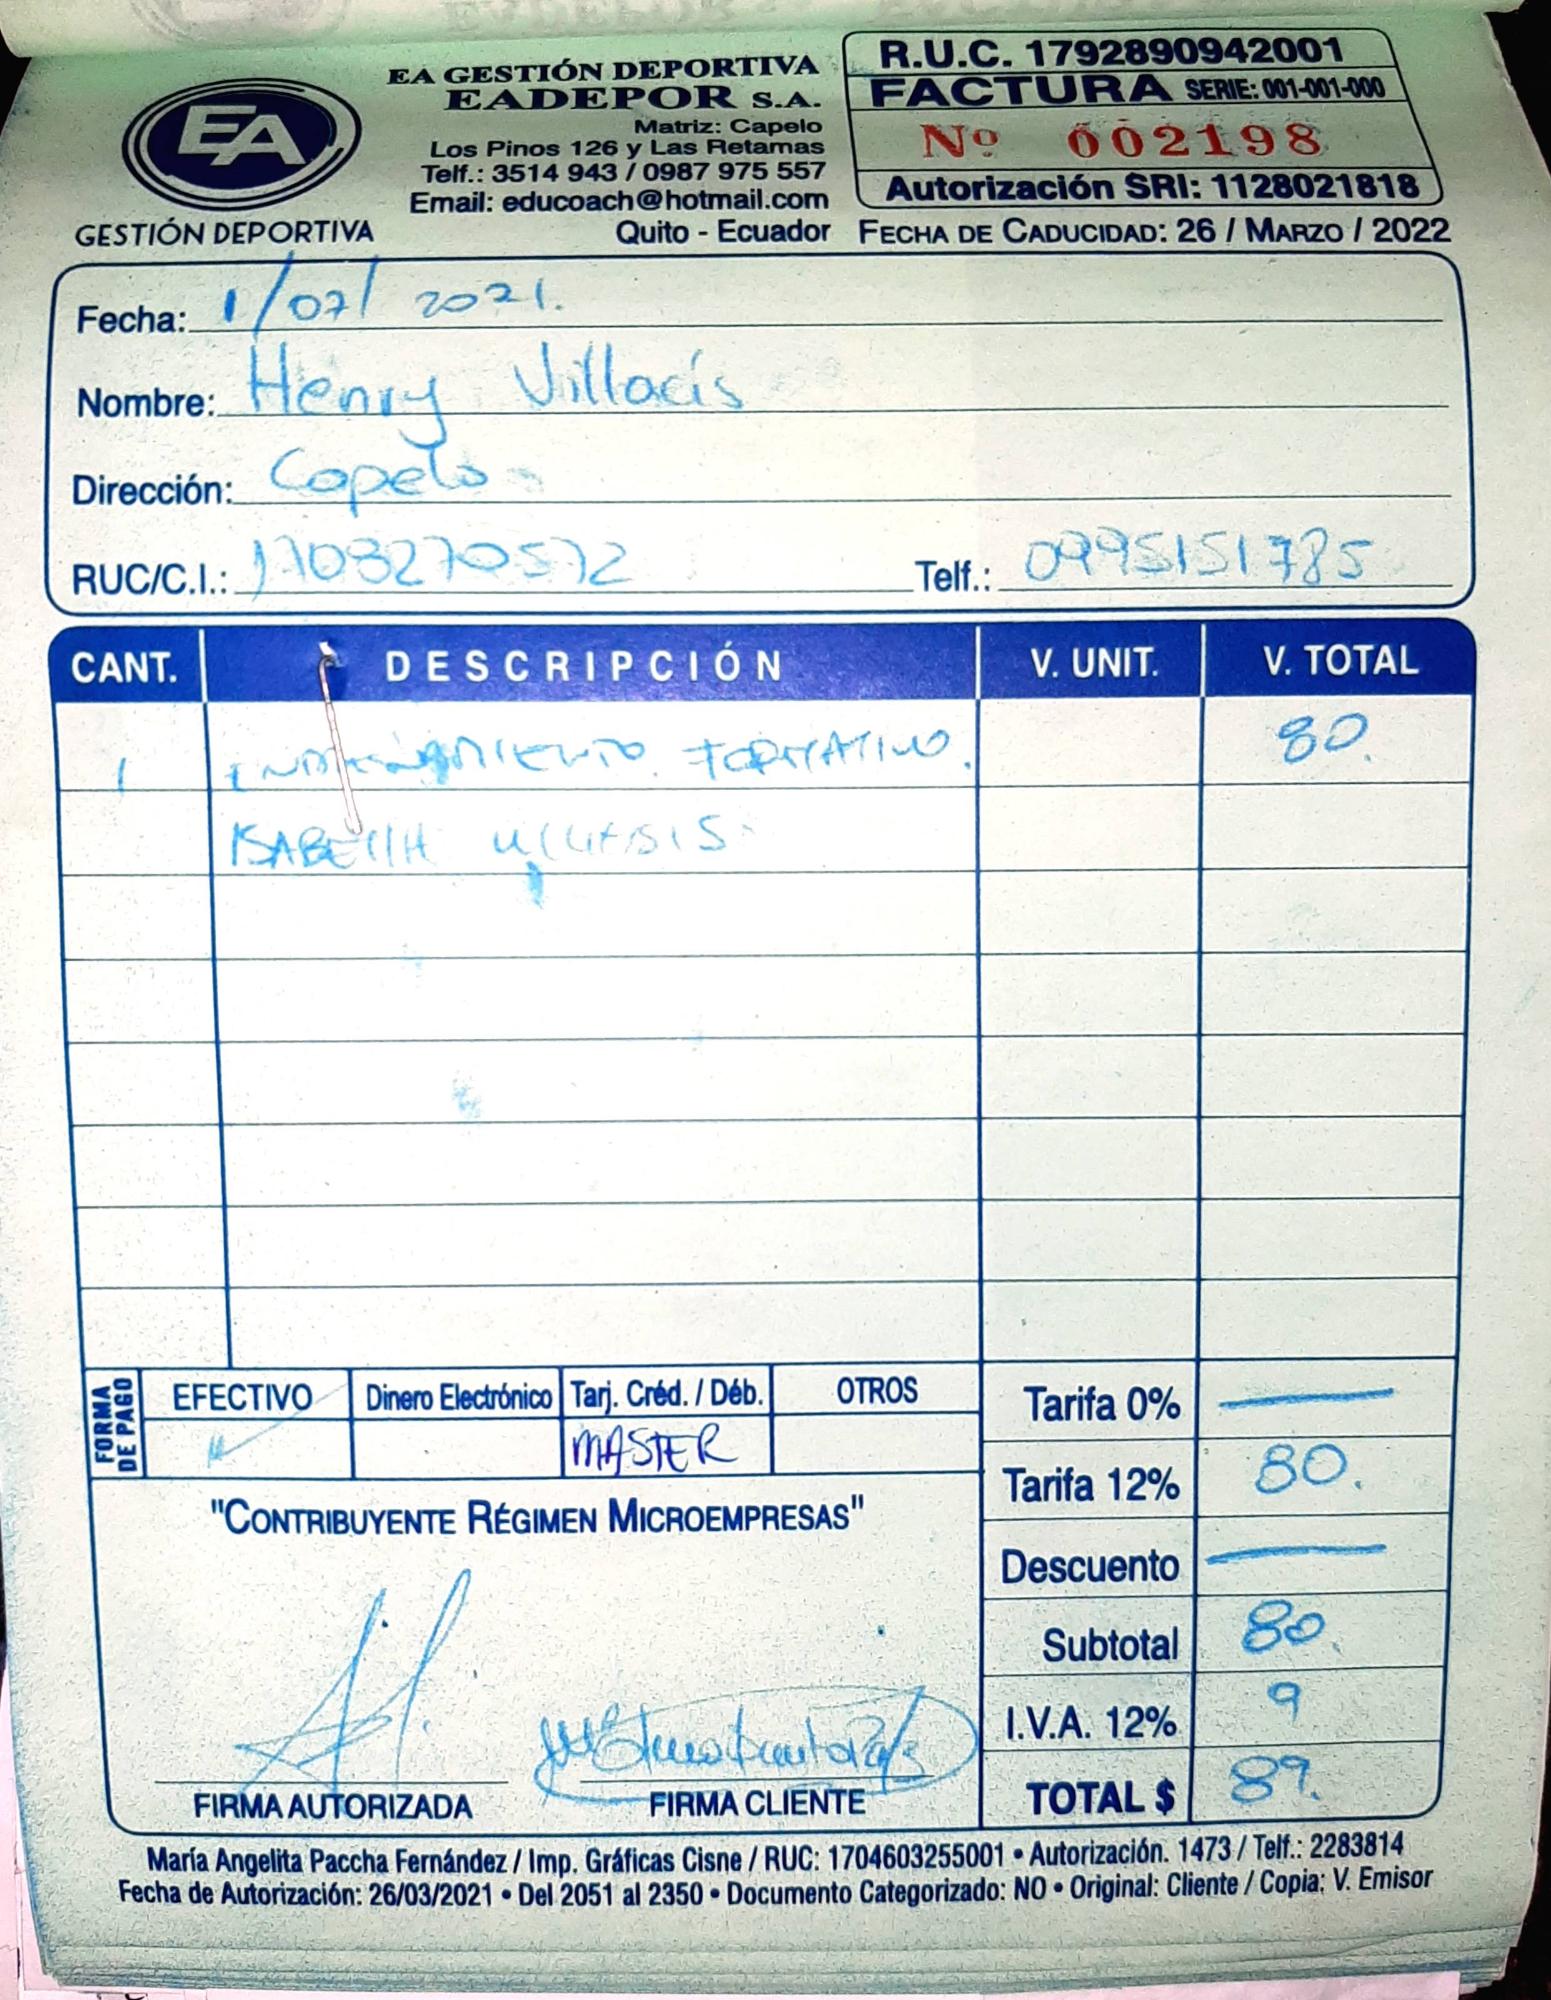 EA
GESTIÓN DEPORTIVA
EA GESTIÓN DEPORTIVA
EADEPOR S.A.
Matriz: Capelo
Los Pinos 126 y Las Retamas
Telf.: 3514 943 / 0987 975 557
Email: educoach@hotmail.com
Quito - Ecuador
R.U.C. 1792890942001
FACTURA SERIE: 001-001-000
Nº 002198
Autorización SRI: 1128021818
FECHA DE CADUCIDAD: 26 / MARZO / 2022
Fecha: 1/07/2021.
Nombre: Henry Villacís
Dirección: Capelo
RUC/C.I.: 1708270572 Telf.: 0995151785
CANT. DESCRIPCIÓN V. UNIT. V. TOTAL
1 ENTRENAMIENTO FORMATIVO. 80.
ISABELLA
FORMA DE PAGO
EFECTIVO Dinero Electrónico Tarj. Créd. / Déb. OTROS
MASTER
Tarifa 0% —
Tarifa 12% 80.
Descuento —
Subtotal 80.
I.V.A. 12% 9
TOTAL $ 89.
"CONTRIBUYENTE RÉGIMEN MICROEMPRESAS"
FIRMA AUTORIZADA FIRMA CLIENTE
María Angelita Paccha Fernández / Imp. Gráficas Cisne / RUC: 1704603255001 • Autorización. 1473 / Telf.: 2283814
Fecha de Autorización: 26/03/2021 • Del 2051 al 2350 • Documento Categorizado: NO • Original: Cliente / Copia: V. Emisor